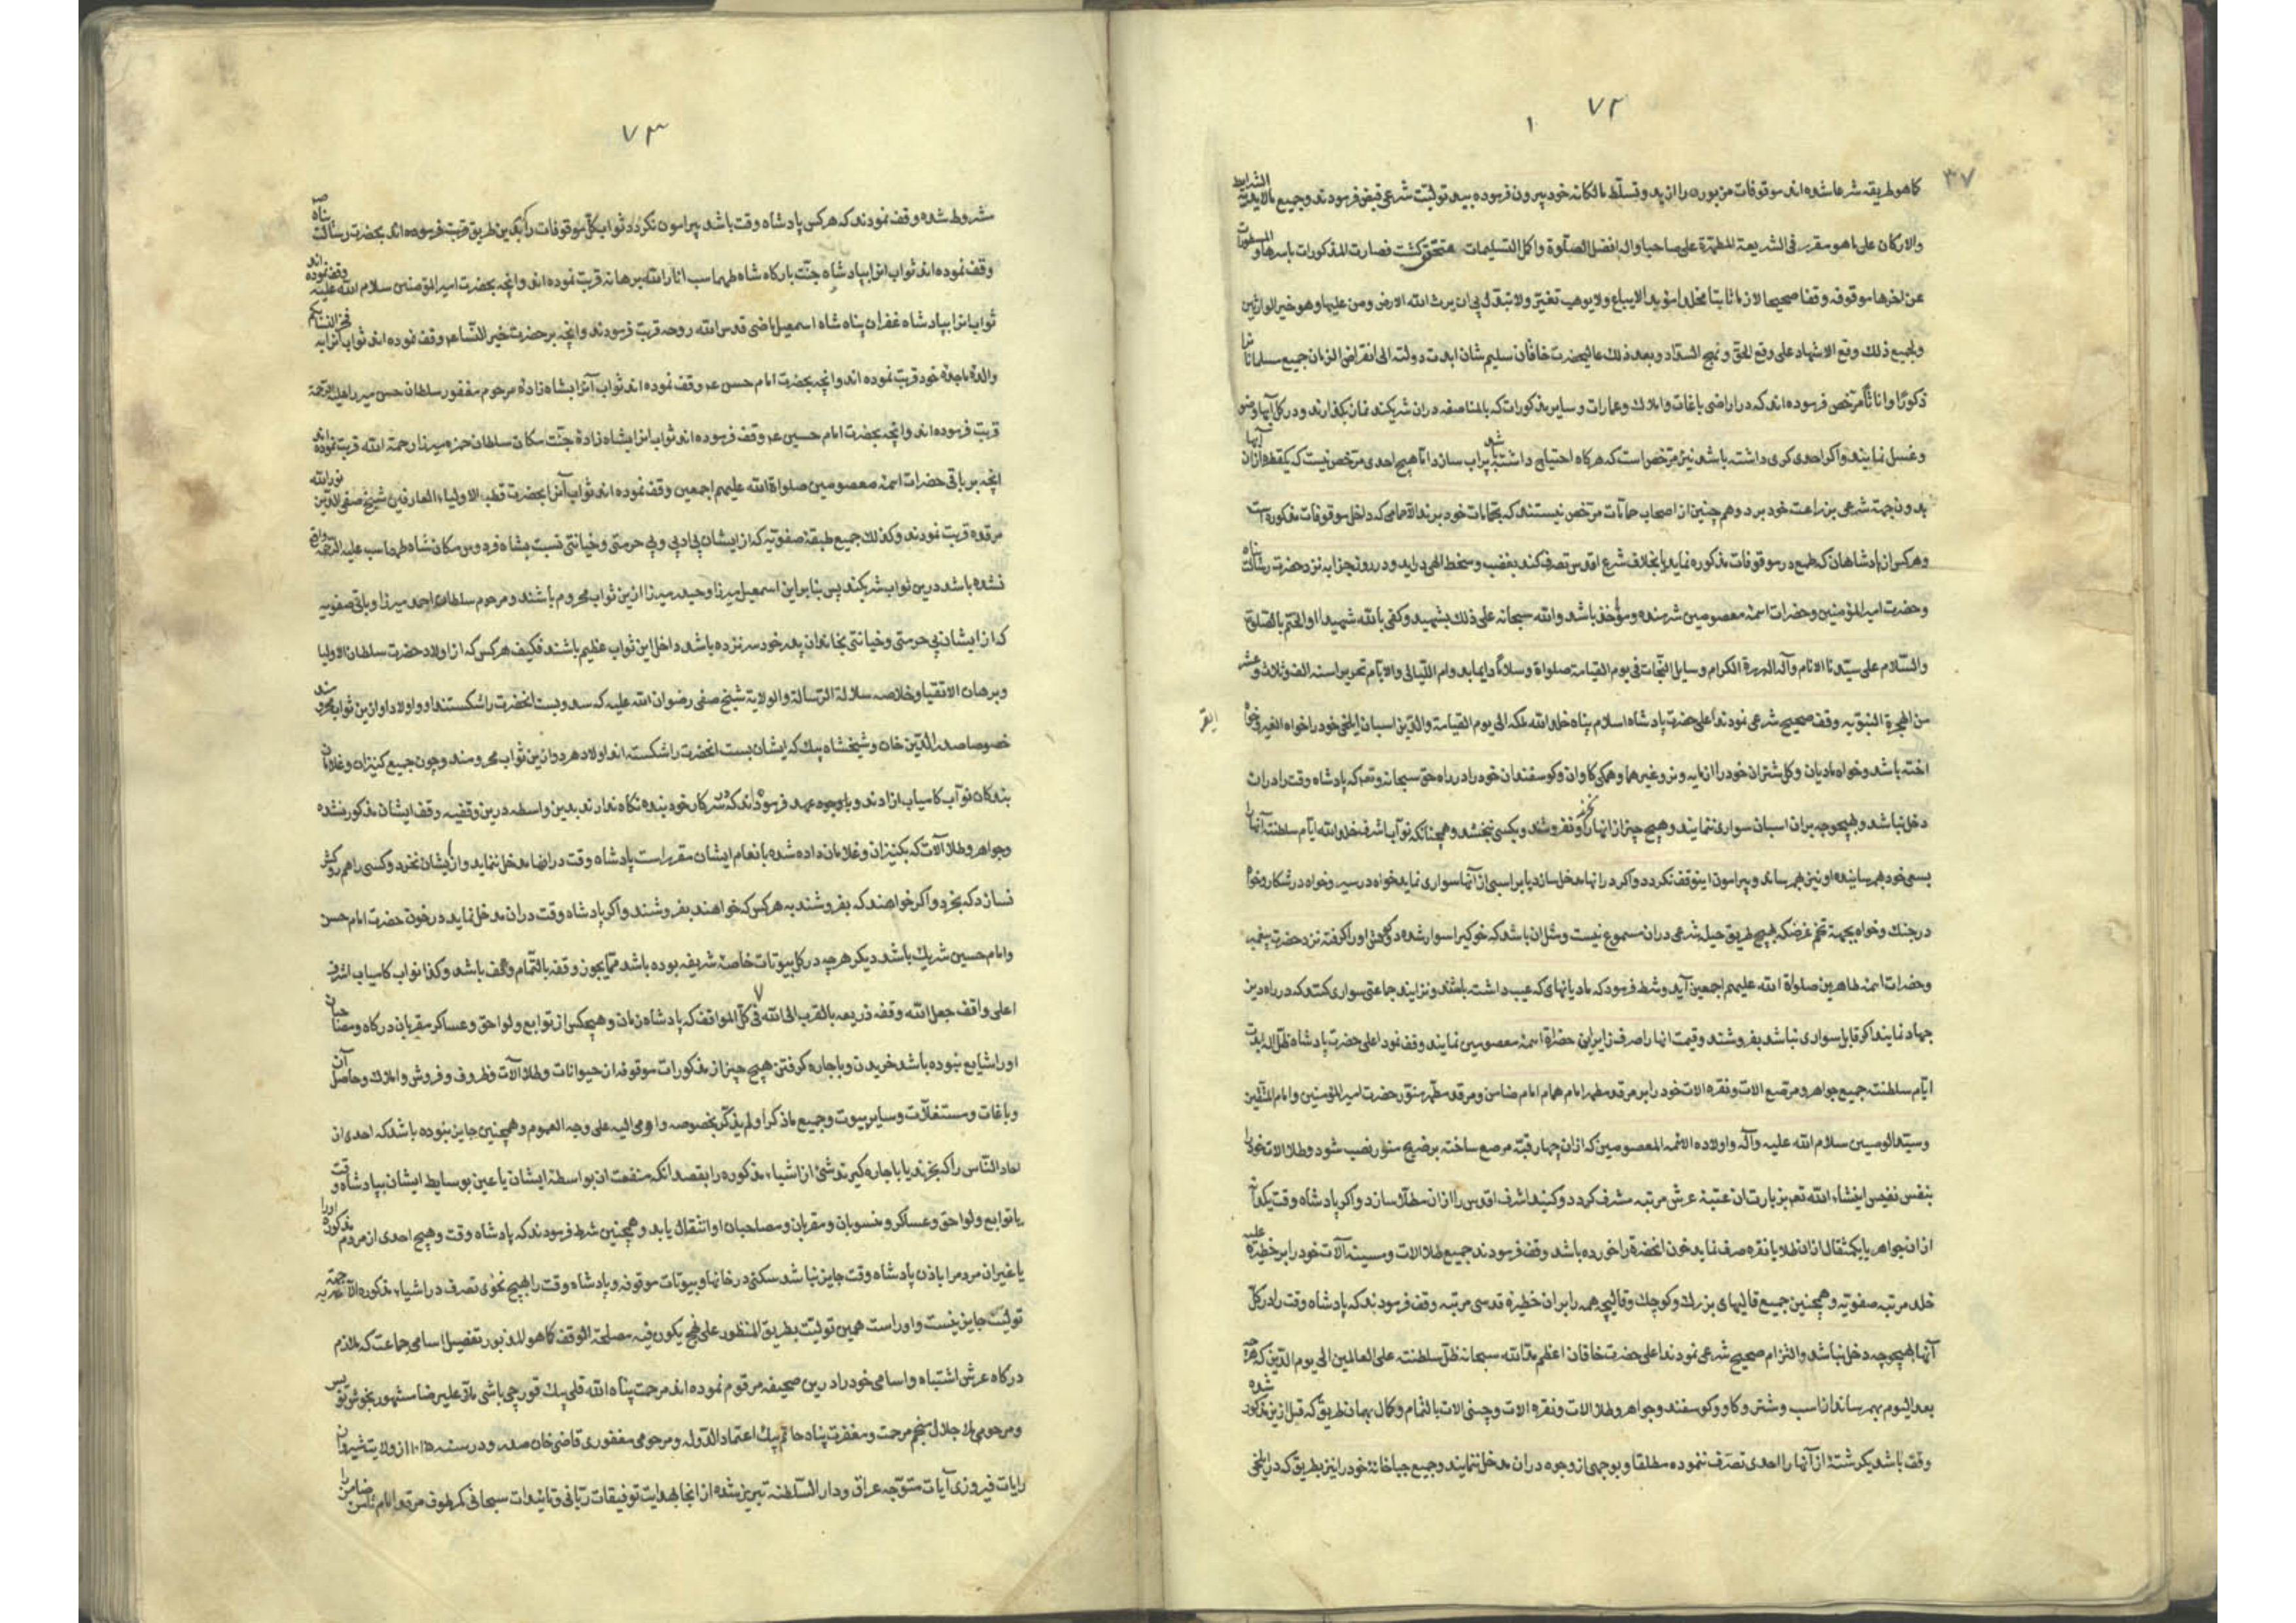 ۷۲
۱
۳۷
کاهو طریقه شرعا شده اند موقوفات مزبوره را از ید و تسلّط مالکانه خود بیرون فرموده بید تولیت شرعی قبض فرمودند و جمیع الشرایط
والارکان علی ما هو مقرر فی الشریعة المطهرة علی صاحبها و اله افضل الصلوة و اکمل التسلیمات متحقق کشت فصارت المذکورات باسرها و
عن اخرها موقوفه وقفا صحیحا لازما ثابتا مخلدا مؤبدا لایباع ولا یوهب تغیر ولا تبدل الی ان یرث الله الارض ومن علیها وهو خیر الوارثین
ولجمیع ذلك وقع الاشهاد علی وقع الحق و نهج السداد و بعد ذلك عالیحضرت خاقان سلیم شان ابدت دولته الی انقراض الزمان جمیع مسلمانان را
ذکورًا و اناثًا مرخص فرموده اند که در اراضی باغات و املاك و عمارات و سایر مذکورات که بالمناصفه در ان شریکند نماز بکذارند و در کل آبها وضو
و غسل نمایند و اکر احدی کری داشته باشد نیز مرخص است که هرکاه احتیاج داشته باشد پراب سازد اما هیچ احدی مرخص نیست که یکقطره از ان آبها
بدون جهة شرعی بزراعت خود برد و هم چنین از اصحاب حمامات مرخص نیستند که بحمامات خود برند الا حمامی که داخل موقوفات مذکوره است
و هرکس از پادشاهان که طمع در موقوفات مذکوره نماید یا بخلاف شرع اقدس تصرف کند بغضب و سخط الهی دراید و در روز جزا به نزد حضرت رسالت پناه
و حضرت امیر المؤمنین و حضرات ائمه معصومین شرمنده و مؤاخذ باشد والله سبحانه علی ذلك یشهید و کفی بالله شهیدا و الختم بالصلوة
والسّلام علی سیدنا الانام و آله البررة الکرام و سایل النجات فی یوم القیامة صلواة و سلامًا دایما بدوام اللیالی والایام تحریرا سنه الف و ثلاث و عشر
من الهجرة النبویه وقف صحیح شرعی نمودند اعلی حضرت پادشاه اسلام پناه خلد الله ملکه الی یوم القیامة والدین اسبان ایلخی خود را خواه
اخته باشد و خواه مادیان و کل شتران خود را از مایه و نر و غیرهما و همکی کاوان و کوسفندان خود را در راه حق سبحانه و تعم که پادشاه وقت را در ان
دخل نباشد و بهیچوجه بران اسبان سواری ننمایند و هیچ چیز از انها را نخرد و نفروشد و بکسی نبخشد و همچنانکه نواب اشرف خلد الله ایام سلطنته آنها را
بسعی خود بهم رسانیده او نیز بهم رساند و پیرامون این وقف نکردد و اکر در انها مدخل سازد یا بر اسبی از آنها سواری نماید خواه در سیر و خواه در شکار و خواه
در جنك و خواه بجهة تخم غرضکه بهیچ طریق حیل شرعی دران مسموع نیست و مثل ان باشد که خوکی را سوار شده و کوش او را کرفته نزد حضرت پیغمبر
و حضرات ائمه طاهرین صلواة الله علیهم اجمعین آید و شرط فرمود که مادیانهای که عیب داشته باشند و نزایند جماعتی سواری کنند که در راه دین
جهاد نمایند اکر قابل سواری نباشد بفروشند و قیمت انها را صرف زایرین حضراة ائمه معصومین نمایند وقف نمود اعلی حضرت پادشاه ظل اله ابدت
ایام سلطنته جمیع جواهر و مرصع الات و نقره الات خود را بر مرقد مطهر امام همام امام ضامن و مرقد مطهر منور حضرت امیر المؤمنین و امام المتقین
و سید الوصیین سلام الله علیه و آله و اولاده الائمه المعصومین که از ان چهار قبه مرصع ساخته بر ضریح منور نصب شود و طلا الات خود را
بنفس نفیس انشاء الله تعم بزیارت ان عتبه عرش مرتبه مشرف کردد و کنبد اشرف اقدس را از ان مطلا سازد و اکر پادشاه وقت یکدانه
از ان جواهر یا یکمثقال از ان طلا یا نقره صرف نماید خون انحضرة را خورده باشد وقف فرمودند جمیع طلا الات و مسینه آلات خود را بر خطیره علیه
خلد مرتبه صفویه و همچنین جمیع قالیهای بزرك و کوچك و قالیچه همه را بران خطیره قدسی مرتبه وقف فرمودند که پادشاه وقت را در کل
آنها بهیچوجه دخل نباشد و التزام صحیح شرعی نمودند اعلی حضرت خاقان اعظم مد الله سبحانه ظل سلطنته علی العالمین الی یوم الدین که هرچه
بعد الیوم بهم رسانند از اسب و شتر و کاو و کوسفند و جواهر و طلا الات و نقره الات و چینی الات بالتمام و کمال بهمان طریق که قبل ازین مذکور شده
وقف باشد یکرشته از آنها را احدی تصرف ننموده مطلقا و بوجهی از وجوه دران مدخل ننمایند و جمیع جباخانه خود را نیز بطریق که در ایلخی
۷۳
مشروط شده وقف نمودند که هرکس پادشاه وقت باشد پیرامون نکردد ثواب کل موقوفات را بدین طریق قربت فرموده اند بحضرت رسالت پناه
وقف نموده اند ثواب انرا بپادشاه جنّت بارکاه شاه طهماسب انار الله برهانه قربت نموده اند و انچه بحضرت امیر المؤمنین سلام الله علیه وقف نموده اند
ثواب انرا بپادشاه غفران پناه شاه اسمعیل ماضی قدس الله روحه قربت فرمودند و انچه بر حضرت خیر النساء وقف نموده اند ثواب انرا به
والده ماجده خود قربت نموده اند و انچه بحضرت امام حسن ع وقف نموده اند ثواب آنرا بشاه زاده مرحوم مغفور سلطان حسن میرزا علیه الرحمة
قربت فرموده اند و انچه بحضرت امام حسین ع وقف فرموده اند ثواب انرا بشاه زاده جنّت مکان سلطان حمزه میرزا رحمة الله قربت نموده اند
انچه بر باقی حضرات ائمه معصومین صلواة الله علیهم اجمعین وقف نموده اند ثواب آنرا بحضرت قطب الاولیاء العارفین شیخ صفی الدین نور الله
مرقده قربت نمودند و کذلك جمیع طبقه صفویه که از ایشان بی ادبی و بی حرمتی و خیانتی نسبت بشاه فردوس مکان شاه طهماسب علیه الرحمه واقع
نشده باشد درین ثواب شریکند پس بنابراین اسمعیل میرزا و حیدر میرزا ازین ثواب محروم باشند و مرحوم سلطان احمد میرزا و باقی صفویه
که از ایشان بی حرمتی و خیانتی بخاندان پدر خود سر نزده باشد داخل این ثواب عظیم باشند فکیف هرکس که از اولاد حضرت سلطان الاولیا
و برهان الاتقیا و خلاصه سلالة الرسالة والولایة شیخ صفی رضوان الله علیه که سد و بست انحضرت را شکستند او و اولاد او ازین ثواب محرومند
خصوصا صدر الدین خان و شیخشاه بیك که ایشان بست انحضرت را شکسته اند اولاد هر دو ازین ثواب محرومند و چون جمیع کنیزان و غلامان
بندکان نواب کامیاب ازادند و باوجود عهد فرموده اند که در سرکار خود بنده نکاه ندارند بدین واسطه درین وقفیه وقف ایشان مذکور نشده
و جواهر و طلا آلات که بکنیزان و غلامان داده شده بانعام ایشان مقرر است پادشاه وقت در انها مدخل ننماید و از ایشان نخرد و کسی را هم
نسازد که بخرد و اکر خواهند که بفروشند به هرکس که خواهند بفروشند و اکر پادشاه وقت دران مدخل نماید در خون حضرت امام حسن
و امام حسین شریك باشد دیکر هرچه در کل بیوتات خاصّه شریفه بوده باشد مما یجوز وقفه بالتمام وقف باشد و کذا نواب کامیاب اشرف
اعلی واقف جعل الله وقفه ذریعه بالقرب الی الله فی کل المواقف که پادشاه زمان و هیچکس از توابع و لواحق و عساکر مقربان درکاه و مصاحبان
او را شایع نبوده باشد خریدن و باجاره کرفتن هیچ چیز از مذکورات موقوفه از حیوانات و طلا آلات و ظروف و فروش و املاك و حاصل آن
و باغات و مستغلات و سایر بیوت و جمیع ما ذکر او لم یذکر بخصوصه و اومی الیه علی وجه العموم و همچنین جایز نبوده باشد که احدی از
احاد الناس را که بخرند یا باجاره کیرند شئ از اشیاء مذکوره را بقصد انکه منفعت ان بواسطه ایشان یا عین بوسایط ایشان بپادشاه وقت
یا توابع و لواحق و عساکر و منسوبان و مقربان و مصاحبان او انتقال یابد و همچنین شرط فرمودند که پادشاه وقت و هیچ احدی از مردم مذکوره
یا غیر ان مردم را باذن پادشاه وقت جایز نباشد سکنی در خانها و بیوتات موقوفه و پادشاه وقت را بهیچ نحوی تصرف در اشیاء مذکوره الا بجهة
تولیت جایز نیست و او راست همین تولیت بطریق المنظور علی نهج یکون فیه مصلحة الوقف کما هو المذبور تفصیل اسامی جماعت که ملازم
درکاه عرش اشتباه و اسامی خود را درین صحیفه مرقوم نموده اند مرحمت پناه الله قلی بیك قورچی باشی ملا علیرضا مشهور بخوش نویس
و مرحومی ملا جلال منجم مرحمت و مغفرت پناه حاتم بیك اعتماد الدوله و مرحومی مغفوری قاضی خان صدر و در سنه ۱۰۱۵ از ولایت شیروان
رایات فیروزی آیات متوجه عراق و دار السلطنه تبریز شده از انجا بهدایت توفیقات ربّانی و تائیدات سبحانی کمر طوف مرقد امام ثامن ضامن را